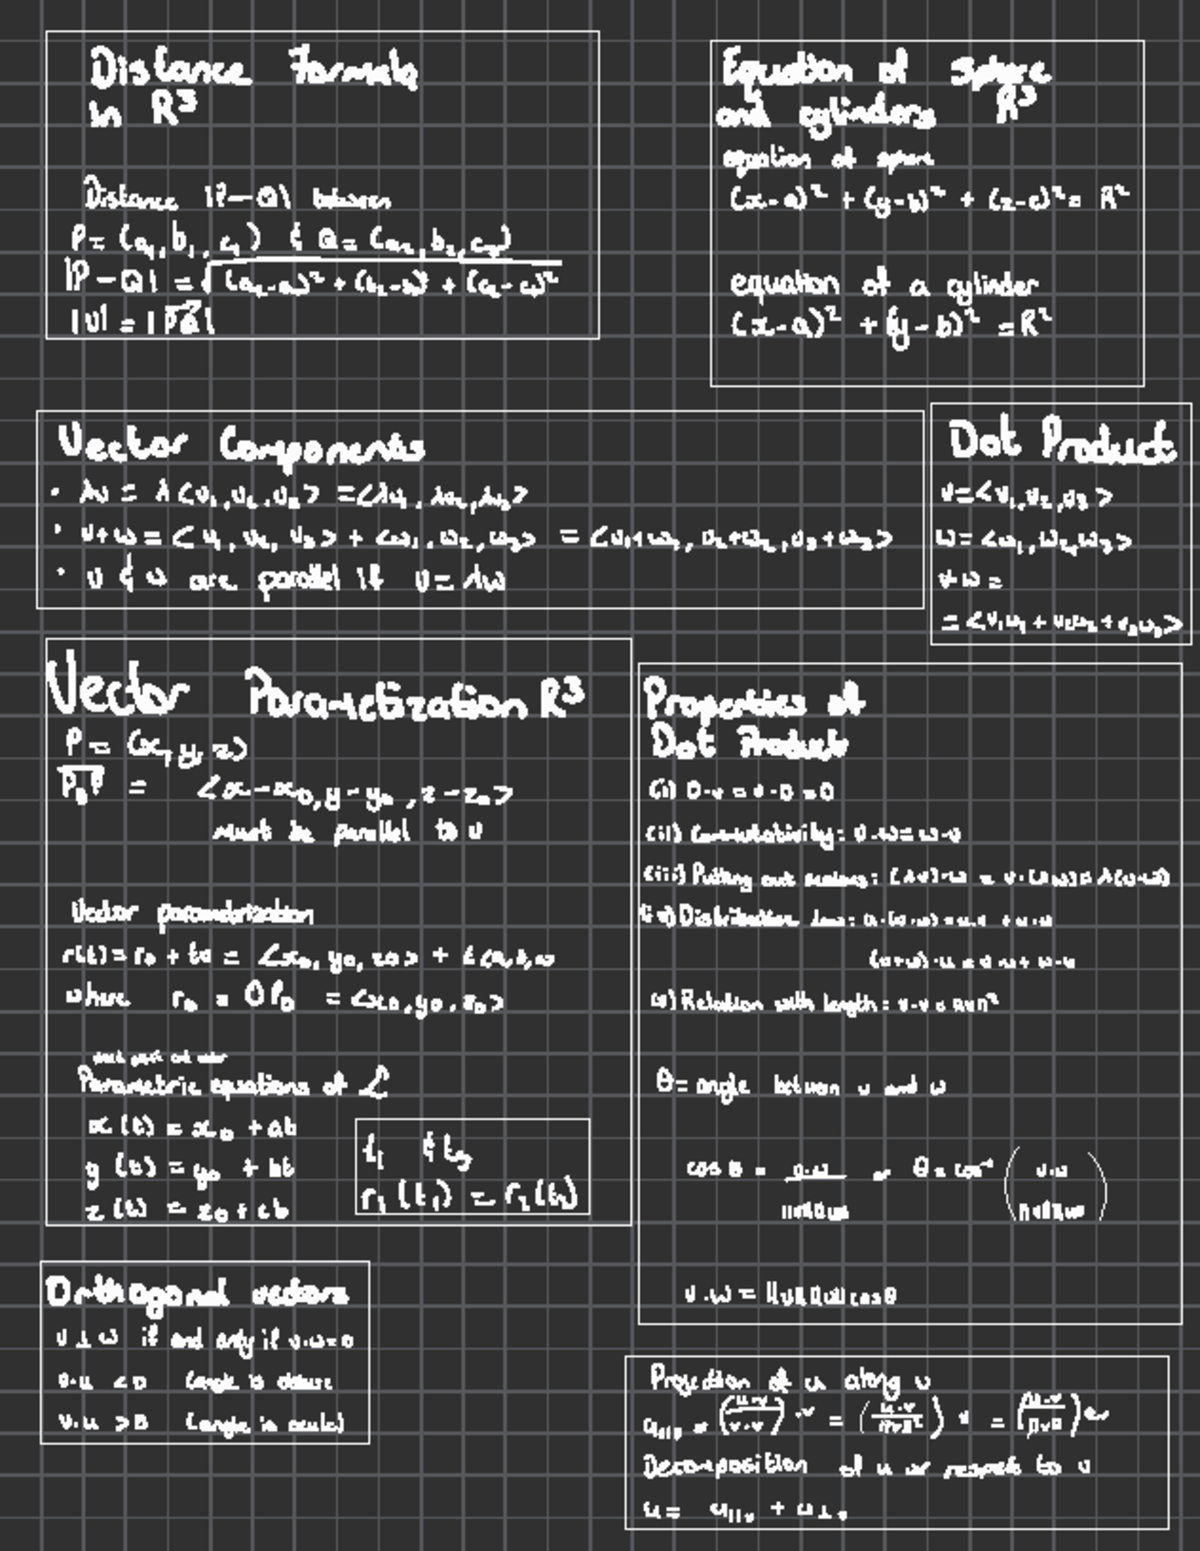 Distance Formula
in R³
Distance |P-Q| between
P = (a₁, b₁, c₁) & Q = (a₂, b₂, c₂)
|P-Q| = √(a₂-a₁)² + (b₂-b₁)² + (c₂-c₁)²
|v| = |PQ|
Equation of sphere
and cylinders R³
equation of sphere
(x-a)² + (y-b)² + (z-c)² = R²
equation of a cylinder
(x-a)² + (y-b)² = R²
Vector Components
• λv = λ<v₁, v₂, v₃> = <λv₁, λv₂, λv₃>
• v+w = <v₁, v₂, v₃> + <w₁, w₂, w₃> = <v₁+w₁, v₂+w₂, v₃+w₃>
• v & w are parallel if v = λw
Dot Product
v = <v₁, v₂, v₃>
w = <w₁, w₂, w₃>
v·w =
= <v₁w₁ + v₂w₂ + v₃w₃>
Vector Parametization R³
P = (x, y, z)
P₀P = <x-x₀, y-y₀, z-z₀>
Must be parallel to v
Vector parametrization
r(t) = r₀ + tv = <x₀, y₀, z₀> + t<a, b, c>
where r₀ = OP₀ = <x₀, y₀, z₀>
Parametric equations of L
x(t) = x₀ + at
y(t) = y₀ + bt
z(t) = z₀ + ct
t₁ & t₂
r₁(t₁) = r₂(t₂)
Properties of
Dot Product
(i) 0·v = v·0 = 0
(ii) Commutativity: v·w = w·v
(iii) Pulling out scalars: (λv)·w = v·(λw) = λ(v·w)
(iv) Distributive law: u·(v+w) = u·v + u·w
(v+w)·u = v·u + w·u
(v) Relation with length: v·v = ||v||²
θ = angle between v and w
cos θ = v·w / ||v|| ||w|| or θ = cos⁻¹ (v·w / ||v|| ||w||)
v·w = ||v|| ||w|| cos θ
Orthogonal vectors
v ⊥ w if and only if v·w = 0
v·u < 0 (angle is obtuse
v·u > 0 (angle is acute)
Projection of u along v
u||v = (u·v / v·v) · v = (u·v / ||v||²) v = (u·v / ||v||) ev
Decomposition of u w respect to v
u = u||v + u⊥v